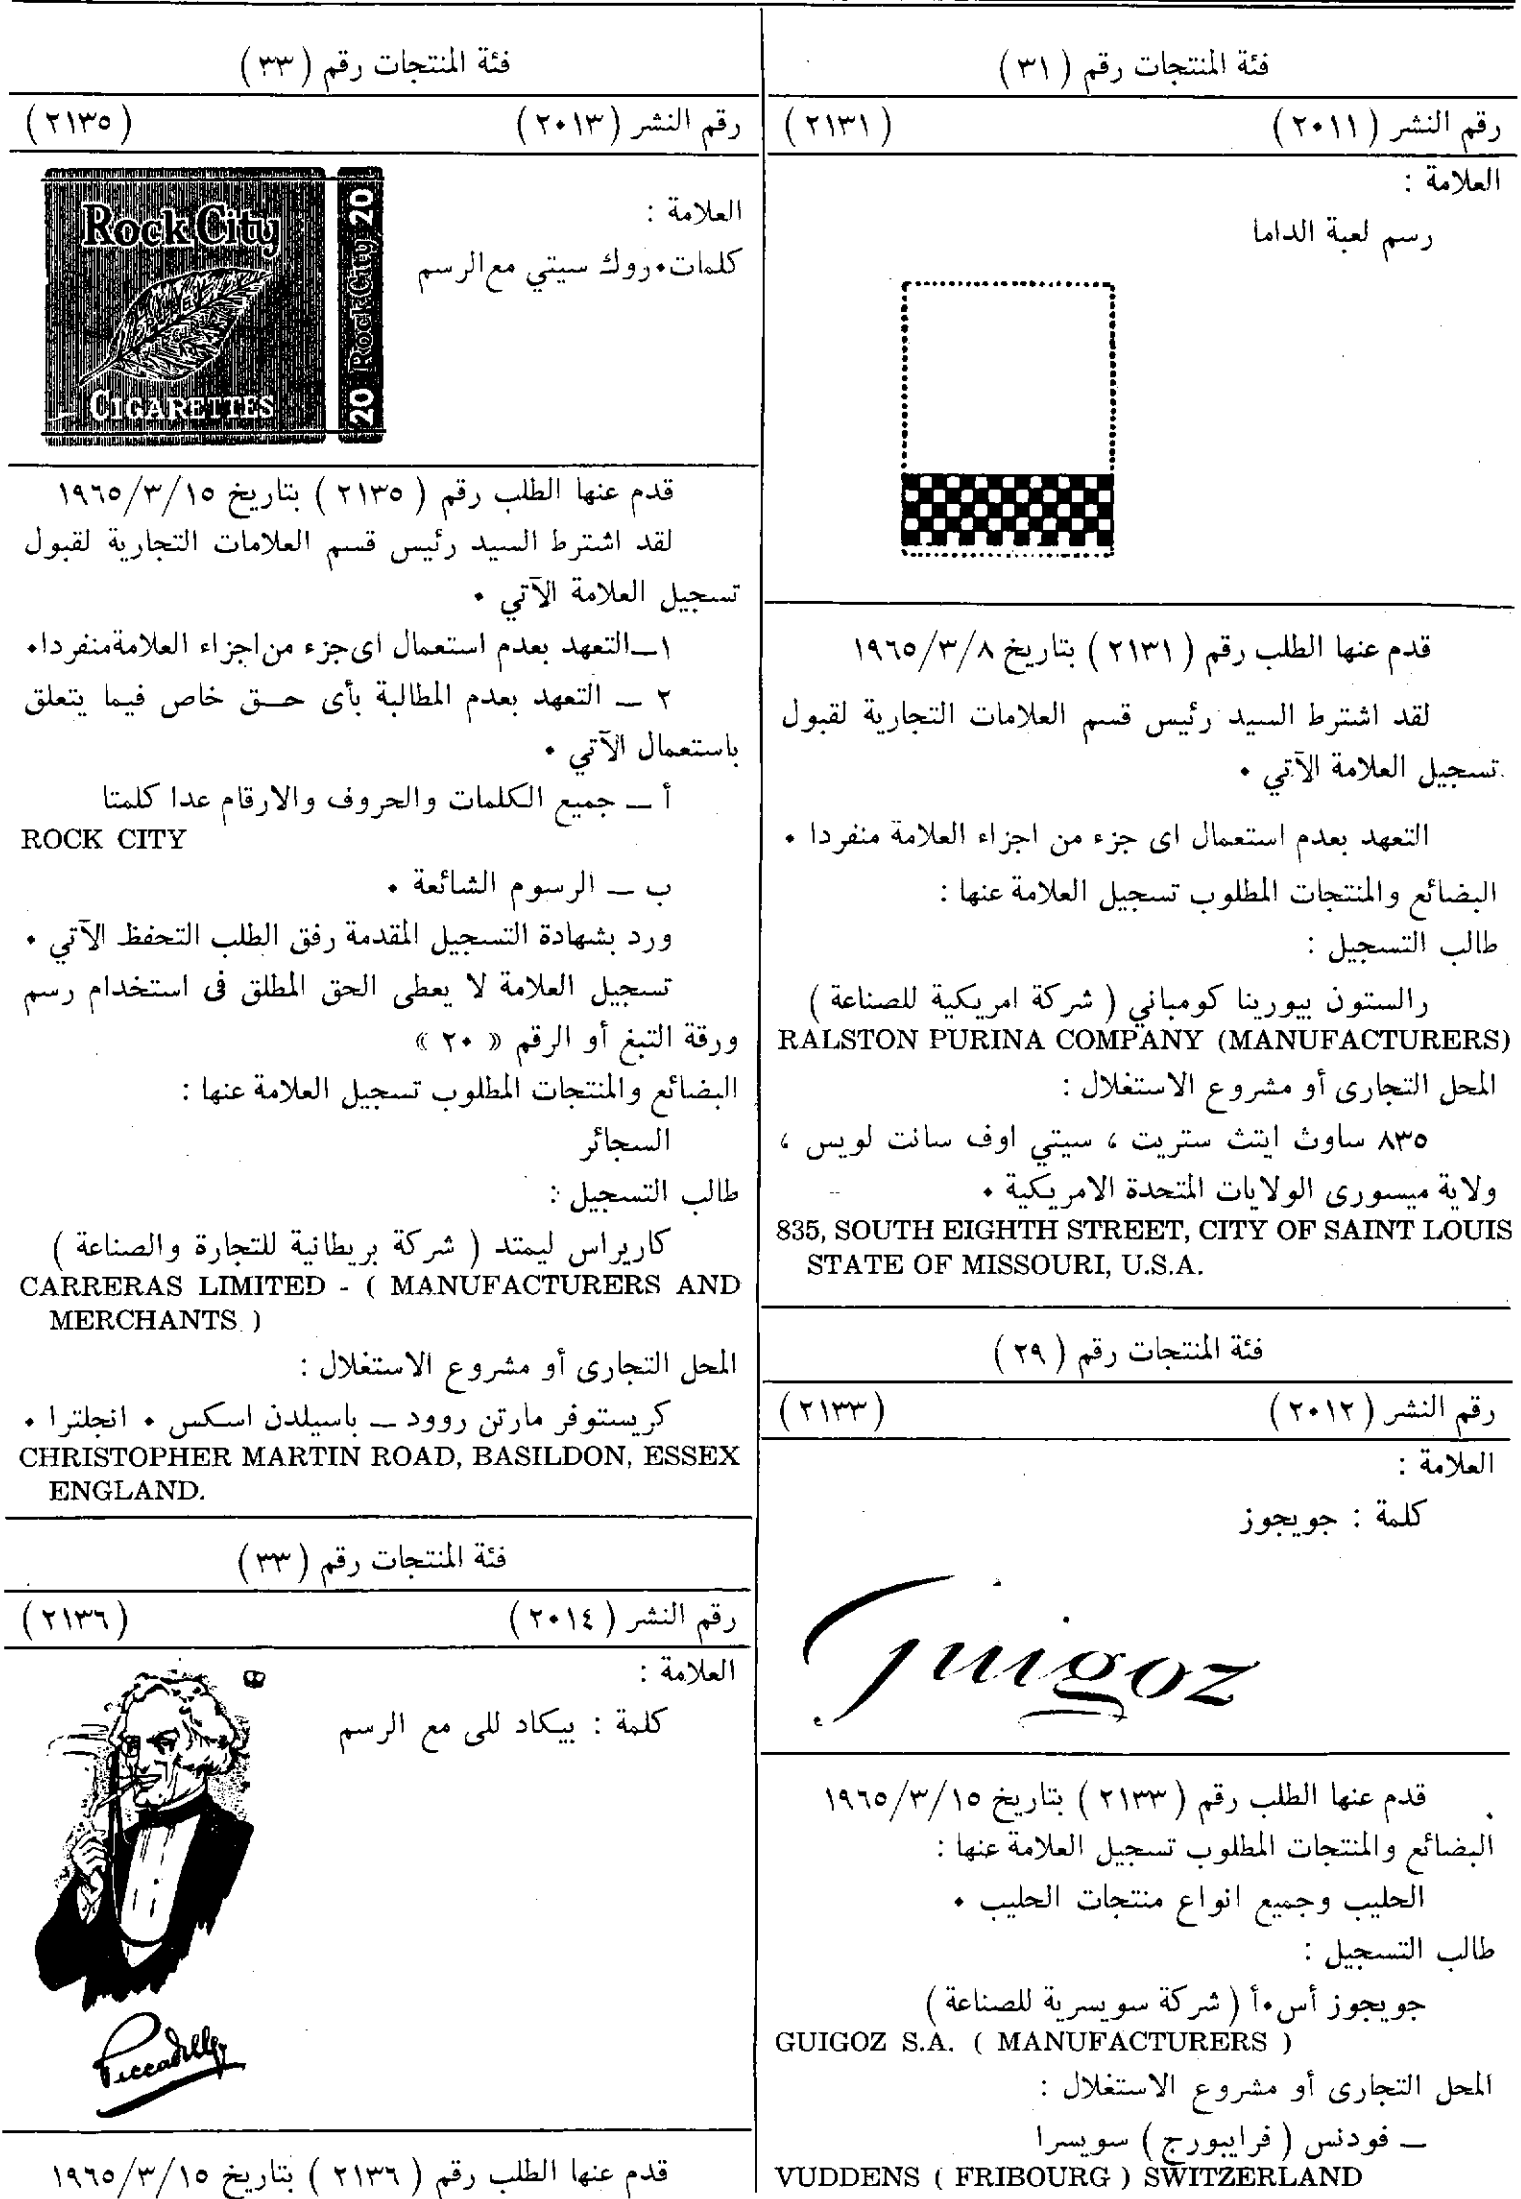 فئة المنتجات رقم ( ٣١ )
رقم النشر ( ٢٠١١ ) ( ٢١٣١ )
العلامة :
رسم لعبة الداما
قدم عنها الطلب رقم ( ٢١٣١ ) بتاريخ ١٩٦٥/٣/٨
لقد اشترط السيد رئيس قسم العلامات التجارية لقبول
تسجيل العلامة الآتي ٠
التعهد بعدم استعمال اى جزء من اجزاء العلامة منفردا ٠
البضائع والمنتجات المطلوب تسجيل العلامة عنها :
طالب التسجيل :
رالستون بيورينا كومباني ( شركة امريكية للصناعة )
RALSTON PURINA COMPANY (MANUFACTURERS)
المحل التجارى أو مشروع الاستغلال :
٨٣٥ ساوث ايتث ستريت ، سيتي اوف سانت لويس ،
ولاية ميسورى الولايات المتحدة الامريكية ٠
835, SOUTH EIGHTH STREET, CITY OF SAINT LOUIS
STATE OF MISSOURI, U.S.A.
فئة المنتجات رقم ( ٢٩ )
رقم النشر ( ٢٠١٢ ) ( ٢١٣٣ )
العلامة :
كلمة : جويجوز
Guigoz
قدم عنها الطلب رقم ( ٢١٣٣ ) بتاريخ ١٩٦٥/٣/١٥
البضائع والمنتجات المطلوب تسجيل العلامة عنها :
الحليب وجميع انواع منتجات الحليب ٠
طالب التسجيل :
جويجوز أس٠أ ( شركة سويسرية للصناعة )
GUIGOZ S.A. ( MANUFACTURERS )
المحل التجارى أو مشروع الاستغلال :
ــ فودنس ( فرايبورج ) سويسرا
VUDDENS ( FRIBOURG ) SWITZERLAND
فئة المنتجات رقم ( ٣٣ )
رقم النشر ( ٢٠١٣ ) ( ٢١٣٥ )
العلامة :
كلمات٠روك سيتي مع الرسم
Rock City
CIGARETTES
20 Rock City 20
قدم عنها الطلب رقم ( ٢١٣٥ ) بتاريخ ١٩٦٥/٣/١٥
لقد اشترط السيد رئيس قسم العلامات التجارية لقبول
تسجيل العلامة الآتي ٠
١ــالتعهد بعدم استعمال اى جزء من اجزاء العلامة منفردا٠
٢ ــ التعهد بعدم المطالبة بأى حــق خاص فيما يتعلق
باستعمال الآتي ٠
أ ــ جميع الكلمات والحروف والارقام عدا كلمتا
ROCK CITY
ب ــ الرسوم الشائعة ٠
ورد بشهادة التسجيل المقدمة رفق الطلب التحفظ الآتي ٠
تسجيل العلامة لا يعطى الحق المطلق فى استخدام رسم
ورقة التبغ أو الرقم « ٢٠ »
البضائع والمنتجات المطلوب تسجيل العلامة عنها :
السجائر
طالب التسجيل :
كاريراس ليمتد ( شركة بريطانية للتجارة والصناعة )
CARRERAS LIMITED - ( MANUFACTURERS AND
MERCHANTS )
المحل التجارى أو مشروع الاستغلال :
كريستوفر مارتن روود ــ باسيلدن اسكس ٠ انجلترا ٠
CHRISTOPHER MARTIN ROAD, BASILDON, ESSEX
ENGLAND.
فئة المنتجات رقم ( ٣٣ )
رقم النشر ( ٢٠١٤ ) ( ٢١٣٦ )
العلامة :
كلمة : بيكاد للى مع الرسم
Piccadilly
قدم عنها الطلب رقم ( ٢١٣٦ ) بتاريخ ١٩٦٥/٣/١٥